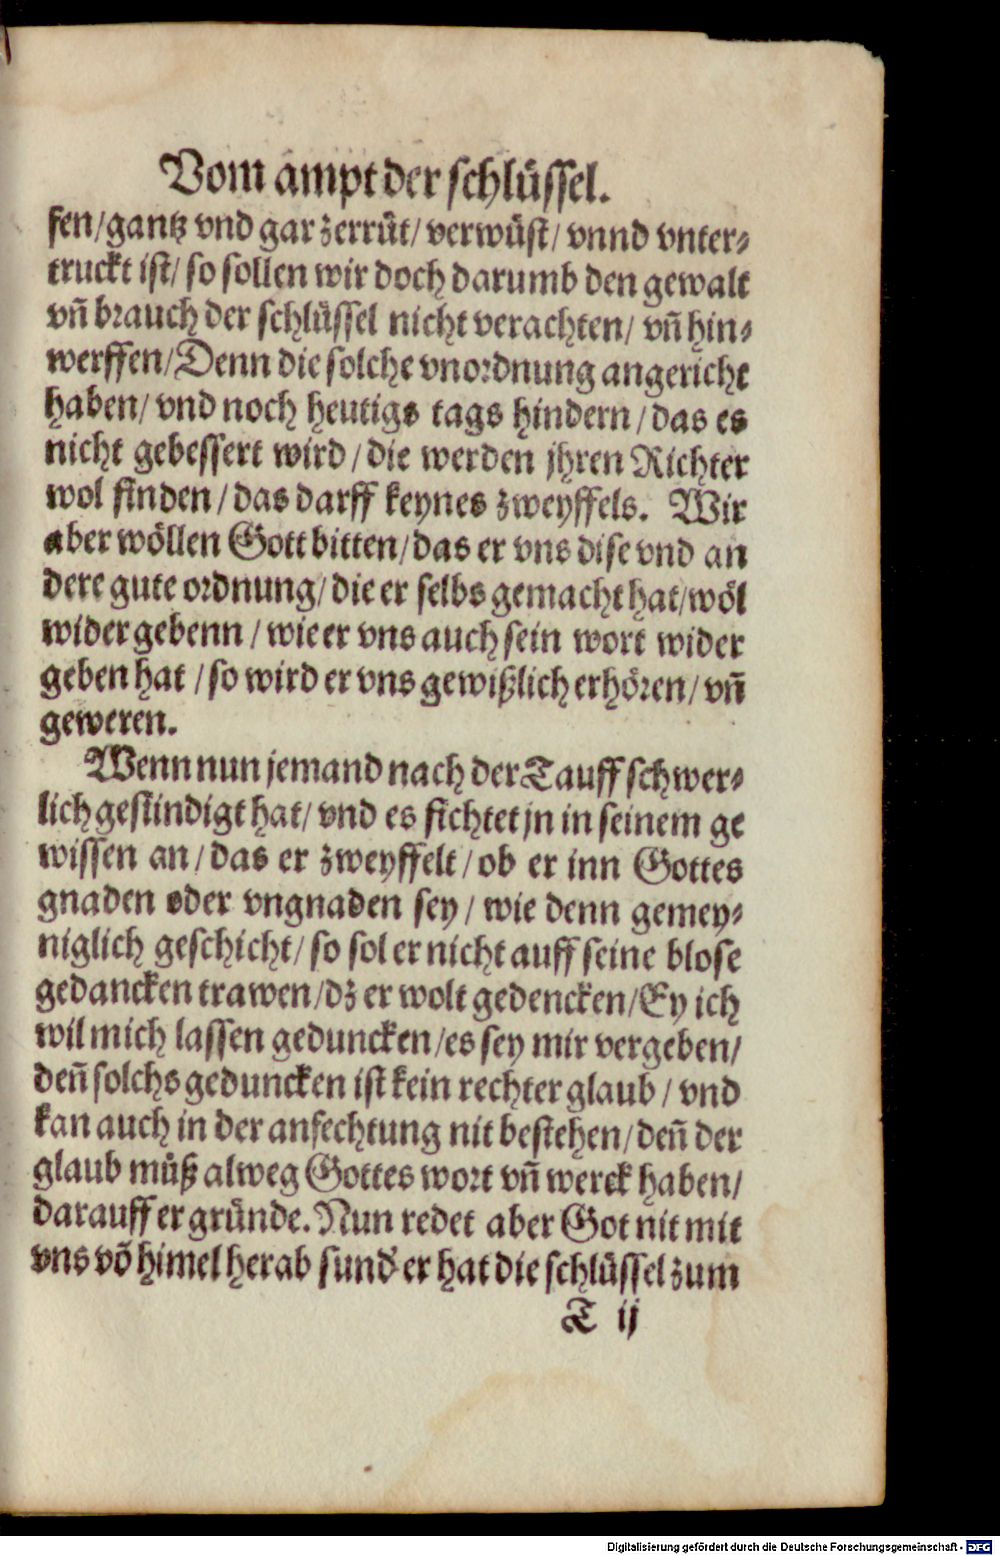 Vom ampt der schlüssel.
sen/gantz vnd gar zerrüt/ verwüst/ vnnd vnter-
truckt ist/ so sollen wir doch darumb den gewalt
vñ brauch der schlüssel nicht verachten/ vñ hin-
werffen/Denn die solche vnordnung angericht
haben/ vnd noch heutigs tags hindern/das es
nicht gebessert wird/die werden jhren Richter
wol finden/das darff keynes zweyffels. Wir
aber wöllen Gott bitten/das er vns dise vnd an
dere gute ordnung/die er selbs gemacht hat/wöl
wider gebenn/wie er vns auch sein wort wider
geben hat/so wird er vns gewißlich erhören/vñ
geweren.
Wenn nun jemand nach der Tauff schwer-
lich gesündigt hat/ vnd es fichtet jn in seinem ge
wissen an/das er zweyffelt/ob er inn Gottes
gnaden oder vngnaden sey/ wie denn gemey-
niglich geschicht/so sol er nicht auff seine blose
gedancken trawen/dz er wolt gedencken/Ey ich
wil mich lassen geduncken/es sey mir vergeben/
deñ solchs geduncken ist kein rechter glaub/vnd
kan auch in der anfechtung nit bestehen/deñ der
glaub müß alweg Gottes wort vñ werck haben/
darauff er gründe. Nun redet aber Got nit mit
vns võ himel herab sund' er hat die schlüssel zum
T ij
Digitalisierung gefördert durch die Deutsche Forschungsgemeinschaft - DFG